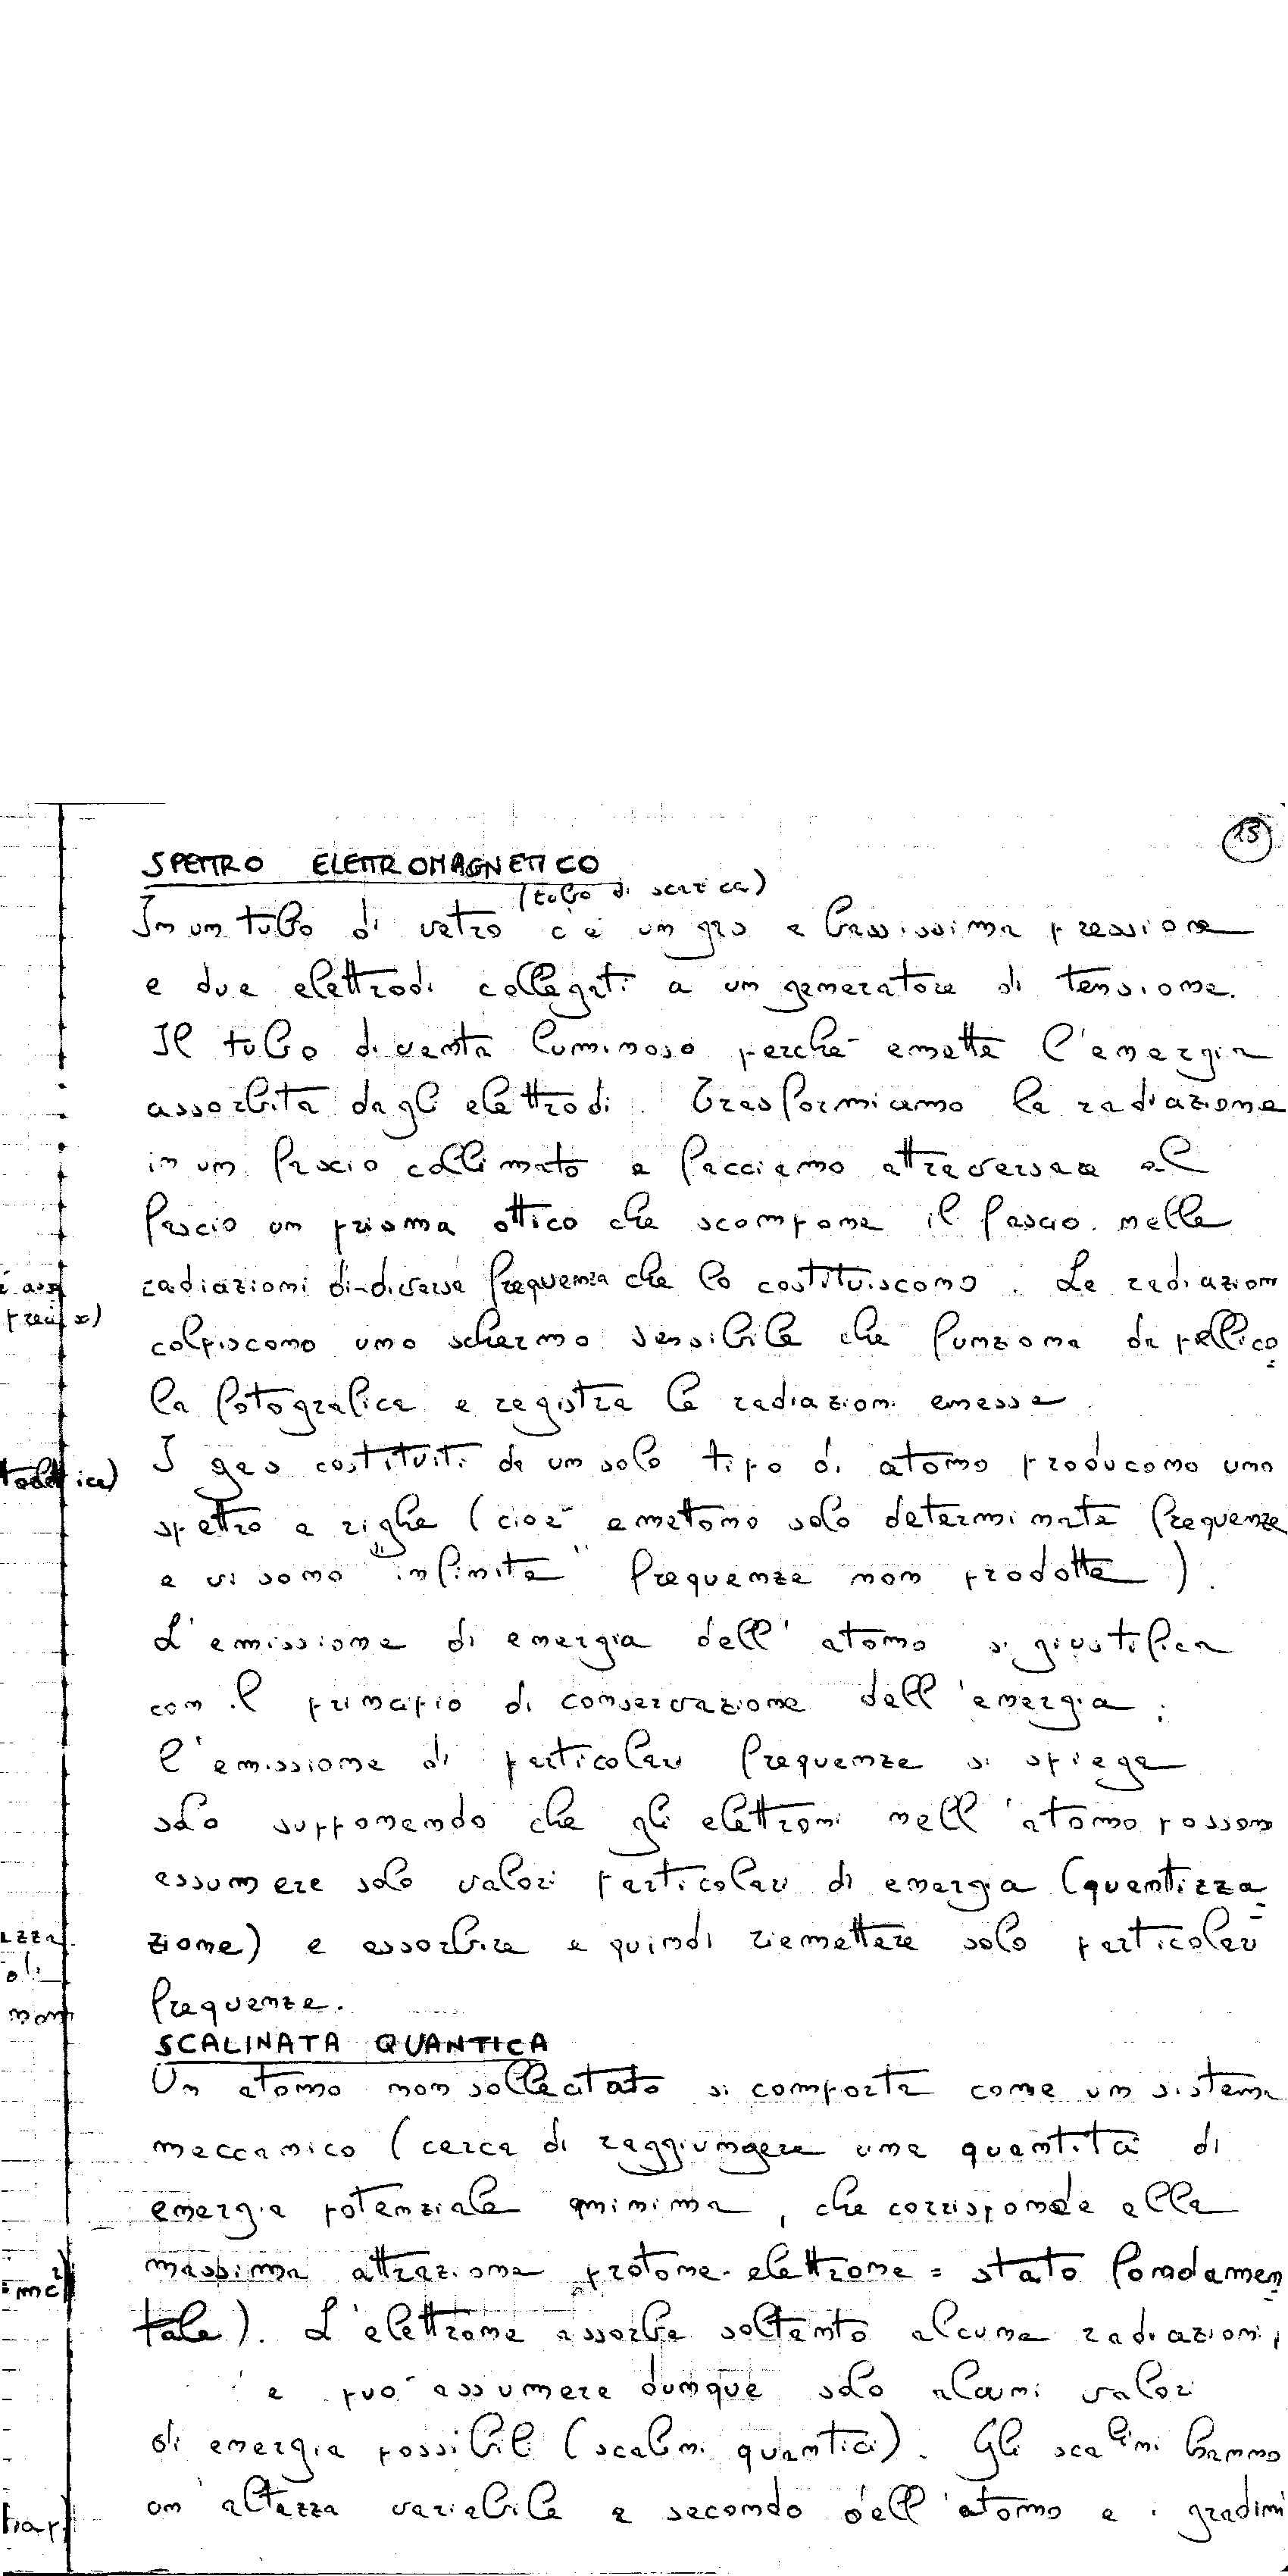 15
SPETTRO ELETTROMAGNETICO
(tubo di scarica)
In un tubo di vetro c'è un gas a bassissima pressione
e due elettrodi collegati a un generatore di tensione.
Il tubo diventa luminoso perché emette l'energia
assorbita dagli elettrodi. Trasformiamo la radiazione
in un fascio collimato e facciamo attraversare al
fascio un prisma ottico che scompone il fascio nelle
radiazioni di diversa frequenza che lo costituiscono. Le radiazion
colpiscono uno schermo sensibile che funziona da pellico=
la fotografica e registra le radiazioni emesse.
I gas costituiti da un solo tipo di atomo producono uno
spettro a righe (cioè emettono solo determinate frequenze
e vi sono "infinite" frequenze non prodotte).
L'emissione di energia dell'atomo si giustifica
con il principio di conservazione dell'energia;
l'emissione di particolari frequenze si spiega
solo supponendo che gli elettroni nell'atomo posson
assumere solo valori particolari di energia (quantizza=
zione) e assorbire e quindi riemettere solo particolari
frequenze.
SCALINATA QUANTICA
Un atomo non sollecitato si comporta come un sistema
meccanico (cerca di raggiungere una quantità di
energia potenziale minima, che corrisponde alla
massima attrazione protone-elettrone = stato fondamen=
tale). L'elettrone assorbe soltanto alcune radiazioni,
e può assumere dunque solo alcuni valori
di energia possibili (scalini quantici). Gli scalini hanno
un'altezza variabile a secondo dell'atomo e i gradini